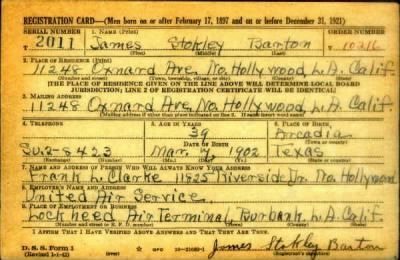 REGISTRATION CARD—(Men born on or after February 17, 1897 and on or before December 31, 1921)
SERIAL NUMBER 1. NAME (Print) ORDER NUMBER
T 2011 James Stokley Barton T 10216
(First) (Middle) (Last)
2. PLACE OF RESIDENCE (Print)
11248 Oxnard Ave, No. Hollywood, L.A. Calif.
(Number and street) (Town, township, village, or city) (County) (State)
[THE PLACE OF RESIDENCE GIVEN ON THE LINE ABOVE WILL DETERMINE LOCAL BOARD
JURISDICTION; LINE 2 OF REGISTRATION CERTIFICATE WILL BE IDENTICAL]
3. MAILING ADDRESS
11248 Oxnard Ave, No. Hollywood, L.A. Calif.
(Mailing address if other than place indicated on line 2. If same insert word same)
4. TELEPHONE 5. AGE IN YEARS 6. PLACE OF BIRTH
39 Arcadia
DATE OF BIRTH
SU. 2-8423 Mar. 4 1902 Texas
7. NAME AND ADDRESS OF PERSON WHO WILL ALWAYS KNOW YOUR ADDRESS
Frank W. Clarke 11825 Riverside Dr. No. Hollywood
8. EMPLOYER'S NAME AND ADDRESS
United Air Service
9. PLACE OF EMPLOYMENT OR BUSINESS
Lockheed Air Terminal, Burbank, L.A. Calif
(Number and street or R. F. D. number) (Town) (County) (State)
I AFFIRM THAT I HAVE VERIFIED ABOVE ANSWERS AND THAT THEY ARE TRUE.
D. S. S. Form 1
(Revised 1-1-42) GPO 16—21630-1 James Stokley Barton